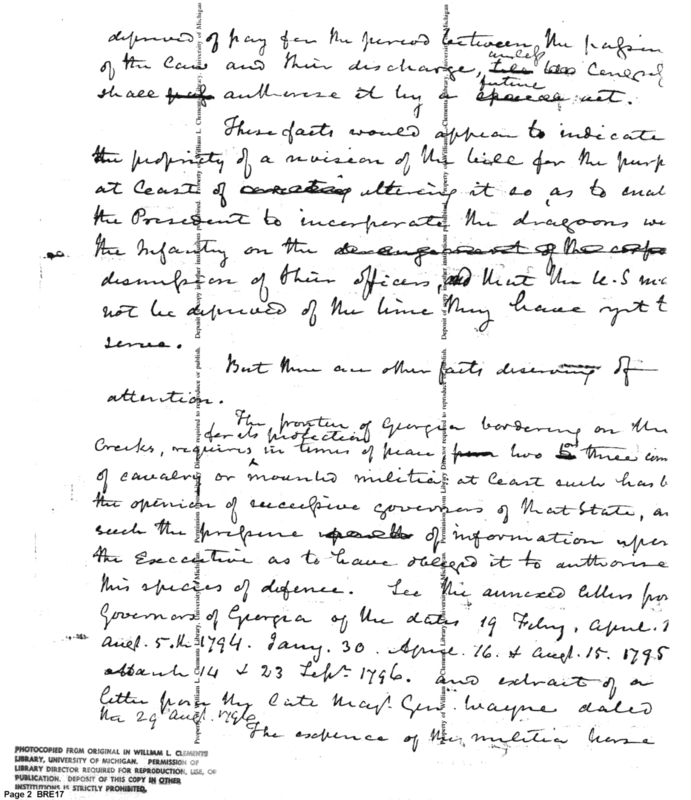 deprived of pay for the period between the passin
of the Law and their discharge, unless Congress
shall authorise it by a future act.
These facts would appear to indicate
the propriety of a revision of the bill for the purp
at least of altering it so as to enab
the President to incorporate the dragoons w
the Infantry on the
dismission of their officers, and that the U.S m
not be deprived of the time they have yet t
serve.
But there are other facts deserving of
attention.
The frontier of Georgia bordering on the
for its protection
Creeks, requires in times of peace two or three com
of cavalry or mounted militia at least such has b
the opinion of successive governors of that State, an
such the pressure of information upon
the Executive as to have obliged it to authorise
this species of defence. See the annexed letters fro
Governors of Georgia of the dates 19 Feby, April.
augt. 5.th 1794. Jany. 30. April. 16. & augt. 15. 1795
14 & 23 Sepr. 1796. and extract of a
letter from the late Majr. Genl. Wayne dated
the 29 augt. 1796
The expence of the militia horse
Property of William L. Clements Library, University of Michigan. Permission of Library Director required to reproduce or publish. Deposit of copy in other institutions prohibited.
PHOTOCOPIED FROM ORIGINAL IN WILLIAM L. CLEMENTS
LIBRARY, UNIVERSITY OF MICHIGAN. PERMISSION OF
LIBRARY DIRECTOR REQUIRED FOR REPRODUCTION, USE, OR
PUBLICATION. DEPOSIT OF THIS COPY IN OTHER
INSTITUTIONS IS STRICTLY PROHIBITED.
Page 2 BRE17